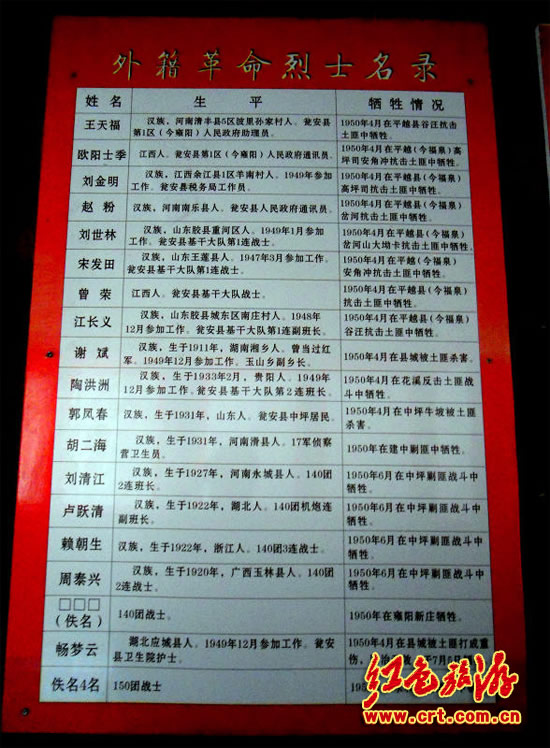 外籍革命烈士名录
姓名 生平 牺牲情况
王天福 汉族，河南清丰县5区陂里孙家村人。瓮安县 1950年4月在平越县谷汪抗击
第1区（今雍阳）人民政府助理员。 土匪中牺牲。
欧阳士季 江西人。瓮安县第1区（今雍阳）人民政府通讯员。 1950年4月在平越（今福泉）高
坪司安角冲抗击土匪中牺牲。
刘金明 汉族，江西余江县1区羊南村人。1949年参加 1950年4月在平越县（今福泉）
工作。瓮安县税务局工作员。 高坪司抗击土匪中牺牲。
赵粉 汉族，河南南乐县人。瓮安县人民政府通讯员。 1950年4月在平越县（今福泉）
岔河抗击土匪中牺牲。
刘世林 汉族，山东胶县重河区人。1949年1月参加 1950年4月在平越县（今福泉）
工作。瓮安县基干大队第1连战士。 岔河山大坳卡抗击土匪中牺牲。
宋发田 汉族，山东王蓬县人。1947年3月参加工作。 1950年4月在平越县（今福泉）
瓮安县基干大队第1连战士。 安角冲抗击土匪中牺牲。
曾荣 江西人。瓮安县基干大队战士。 1950年4月在平越县（今福泉）
抗击土匪中牺牲。
江长义 汉族，山东胶县城东区南庄村人。1948年 1950年4月在平越县（今福泉）
12月参加工作。瓮安县基干大队第1连副班长。 谷汪抗击土匪中牺牲。
谢斌 汉族，生于1911年，湖南湘乡人。曾当过红 1950年4月在县城被土匪杀害。
军。1949年12月参加工作。玉山乡副乡长。
陶洪洲 汉族，生于1933年2月，贵阳人。1949年 1950年4月在花溪反击土匪战
12月参加工作。瓮安县基干大队第2连班长。 斗中牺牲。
郭凤春 汉族，生于1931年，山东人。瓮安县中坪居民。 1950年4月在中坪牛坡被土匪
杀害。
胡二海 汉族，生于1931年，河南滑县人。17军侦察 1950年在建中剿匪中牺牲。
营卫生员。
刘清江 汉族，生于1927年，河南永城县人。140团 1950年6月在中坪剿匪战斗中
2连班长。 牺牲。
卢跃清 汉族，生于1922年，湖北人。140团机炮连 1950年6月在中坪剿匪战斗中
副班长。 牺牲。
赖朝生 汉族，生于1922年，浙江人。140团3连战士。 1950年6月在中坪剿匪战斗中
牺牲。
周泰兴 汉族，生于1920年，广西玉林县人。140团 1950年6月在中坪剿匪战斗中
2连战士。 牺牲。
□□□
（佚名） 140团战士。 1950年在雍阳新庄牺牲。
畅梦云 湖北应城县人。1949年12月参加工作。瓮安 1950年4月在县城被土匪打成重
县卫生院护士。 伤，
佚名4名 150团战士
红色旅游
www.crt.com.cn